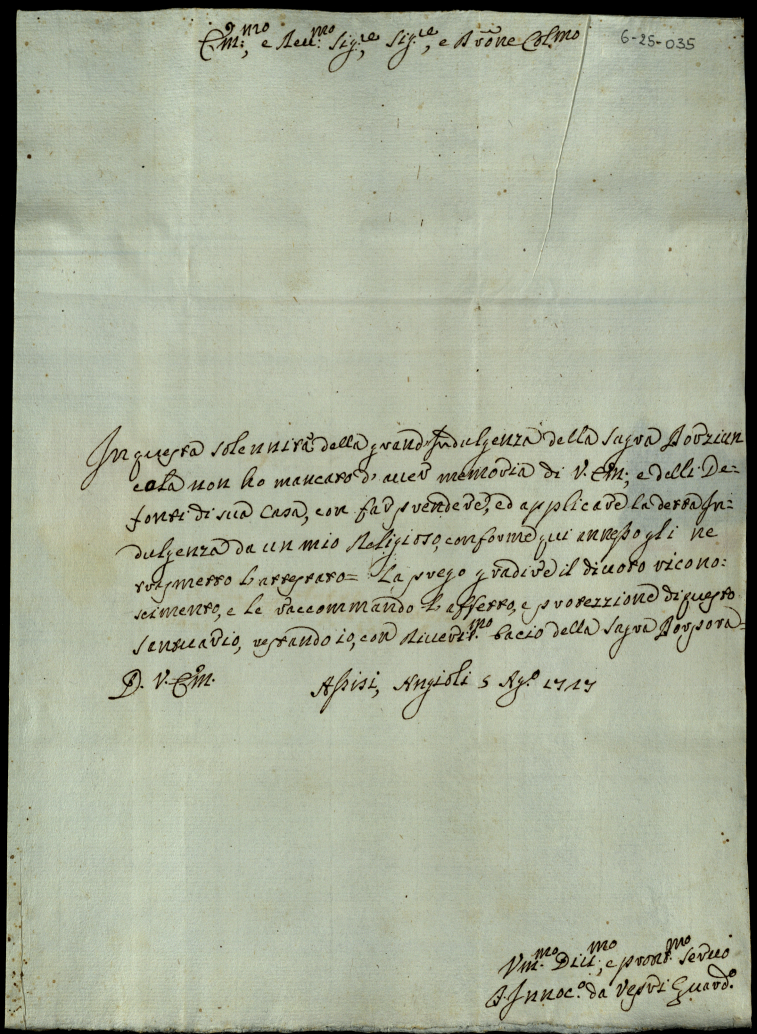 6-25-035
Em:mo, e Reu:mo Sig:re, Sig:re, e Pròne Col:mo
In questa solennità della grand'Indulgenza della Sagra Porziun
cola non ho mancato d'auer memoria di V. Em:, e delli De=
fonti di sua Casa, con far prendere, ed applicare la detta In=
dulgenza da un mio Religioso, conforme qui annesso gli ne
trasmetto l'attestato= La prego gradire il diuoto ricono:
scimento, e le raccommando l'affetto, e protezzione di questo
Santuario, restando io, con Riuerit:mo bacio della Sagra Porpora=
D. V. Em.
Assisi, Angioli 5 Ag.o 1717
Vm:mo Diu:mo, e pront:mo seruo
F. Innoc.o da Guard.o